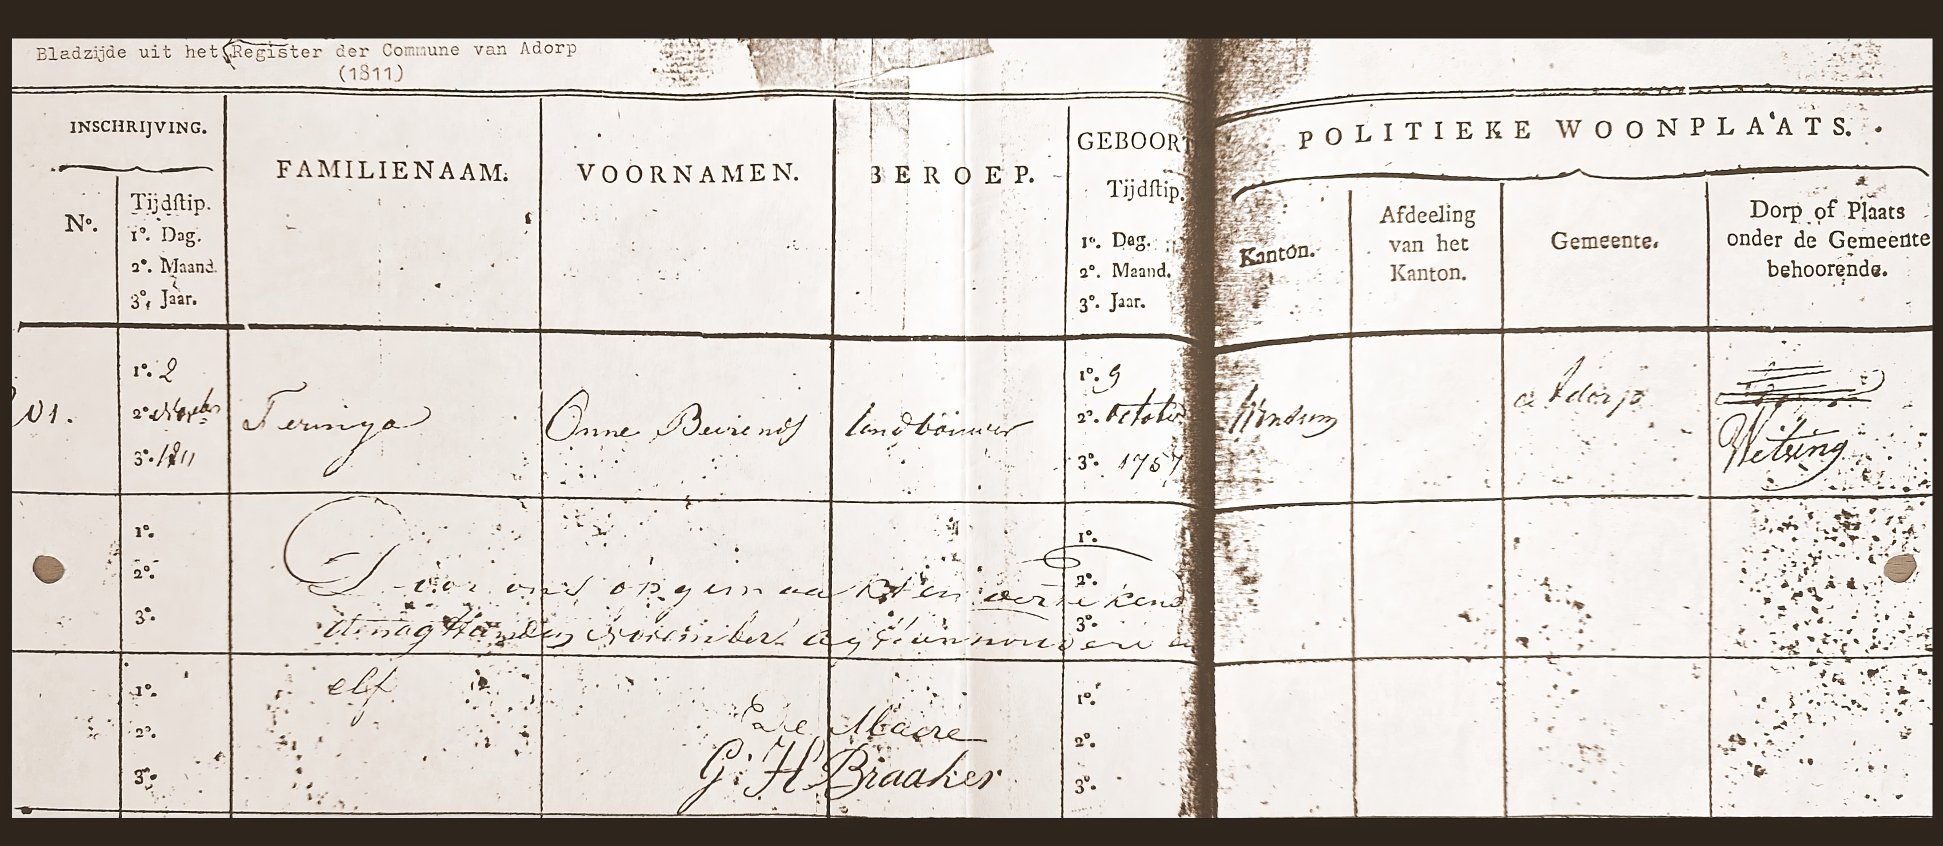 Bladzijde uit het Register der Commune van Adorp
(1811)
INSCHRIJVING.
FAMILIENAAM.
VOORNAMEN.
BEROEP.
GEBOORT
POLITIEKE WOONPLAATS.
N°.
Tijdſtip.
1°. Dag.
2°. Maand.
3°. Jaar.
Tijdſtip.
1°. Dag.
2°. Maand.
3°. Jaar.
Kanton.
Afdeeling
van het
Kanton.
Gemeente.
Dorp of Plaats
onder de Gemeente
behoorende.
01.
1°. 2
2°.
3°. 1811
Teringa
Onne Beirends
landbouwer
1°. 9
2°. october
3°. 1757
Winsum
Adorp
Wetsing
1°.
2°.
3°.
1°.
2°.
3°.
Door ons opgemaakt en
November agtienhondert
elf
1°.
2°.
3°.
1°.
2°.
3°.
De Maire
G: H Braaker